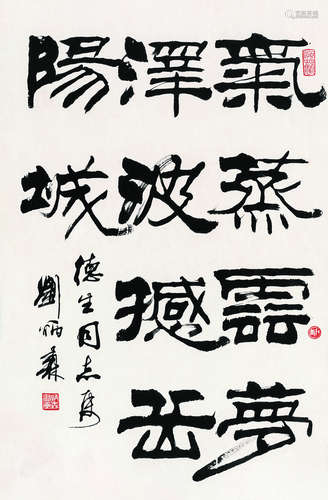 氣蒸雲夢
澤波撼岳
陽城
德生同志属
劉炳森